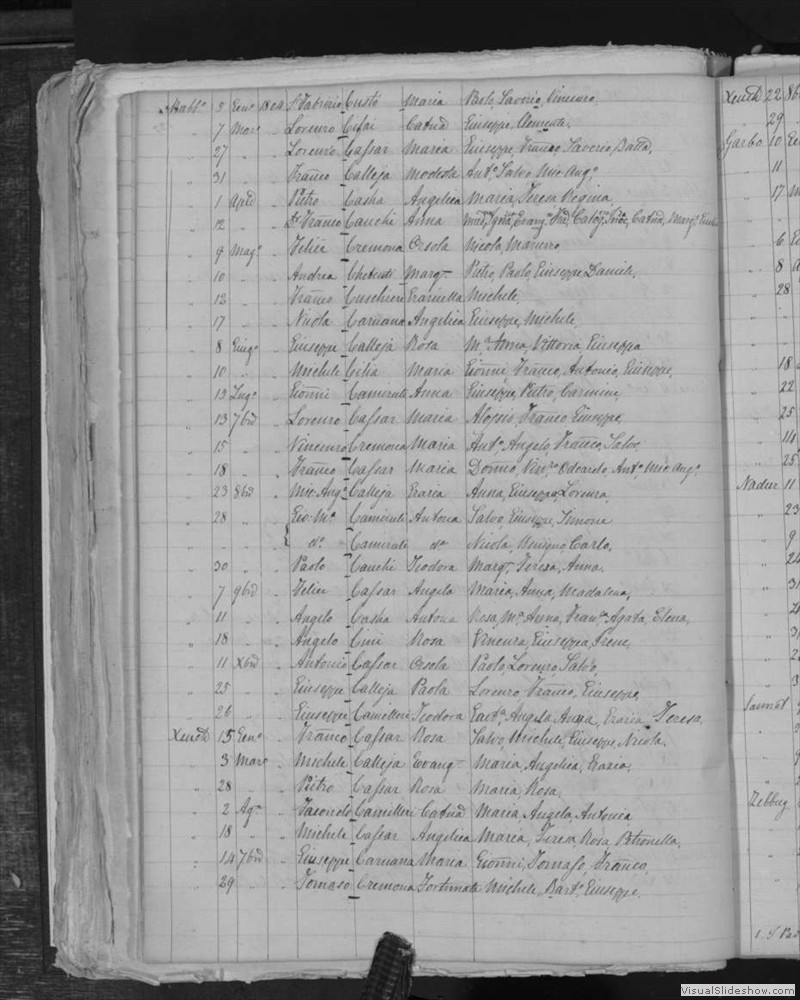 Mattº 5 Genº 1804 Sr Fabrizio Custó Maria Paolo, Saverio, Vincenzo,
7 Marº Lorenzo Cilai Catnd Giuseppe, Clemente,
27 Lorenzo Cassar Maria Giuseppe, Franco, Saverio, Batta,
31 Franco Calleja Modesta Antº, Salvo, Mic Angº
1 Apld Pietro Casha Angelica Maria, Teresa, Regina,
12 Dr Franco Cauchi Anna
9 Magº Felice Cremona Orsola Nicola, Maurizo
10 Andrea Chetcuti Marg Pietro Paolo, Giuseppe, Daniele,
12 Franco Cuschieri Grazinella Michele,
17 Nicola Caruana Angelica Giuseppe, Michele,
8 Giugº Giuseppe Calleja Rosa Mª Anna, Vittoria, Giuseppa
10 Michele Cilia Maria Gionni, Franco, Antonio, Giuseppe,
13 Lugº Gionni Camirati Anna Giuseppe, Pietro, Carmine,
13 7bd Lorenzo Cassar Maria Alessio, Franco, Giuseppe,
15 Vincenzo Cremona Maria Antº, Angelo, Franco, Salvo,
18 Franco Cassar Maria Odoardo, Antº, Mic Angº
23 8bd Mic. Angº Calleja Grazia Anna, Giuseppa, Lorenza,
28 Gio: Mª Camirati Antonia Salvo, Giuseppe, Simone
dº Camirati dª Nicola, Carlo,
30 Paolo Cauchi Teodora Marg, Teresa, Anna,
7 9bd Felice Cassar Angela Maria, Anna, Madalena,
11 Angelo Casha Antona Rosa, Mª Anna, Franca, Agata, Elena,
18 Angelo Cini Rosa Vincenza, Giuseppa, Irene,
11 Xbd Antonio Cassar Orsola Paolo, Lorenzo, Salvo,
25 Giuseppe Calleja Paola Lorenzo, Franco, Giuseppe,
26 Giuseppe Camilleri Teodora Angela, Anna, Grazia, Teresa,
Xeuch 15 Genº Franco Cassar Rosa Salvo, Michele, Giuseppe, Nicola,
3 Marº Michele Calleja Evang Maria, Angelica, Grazio,
28 Pietro Cassar Rosa Maria, Rosa,
2 Agº Sacondo Camilleri Catnd Maria, Angela, Antonia
18 Michele Cassar Angelica Maria, Teresa, Rosa, Petronella,
14 7bd Giuseppe Caruana Maria Gionni, Tomaso, Franco,
29 Tomaso Cremona Fortunata Michele, Bartº, Giuseppe,
Xeuch 22 8b
29
Garbo 10
11
17 M
6
8
28
18
22
25
14
25
Nadur 11
23
9
24
31
Sannat
Zebbug
VisualSlideshow.com